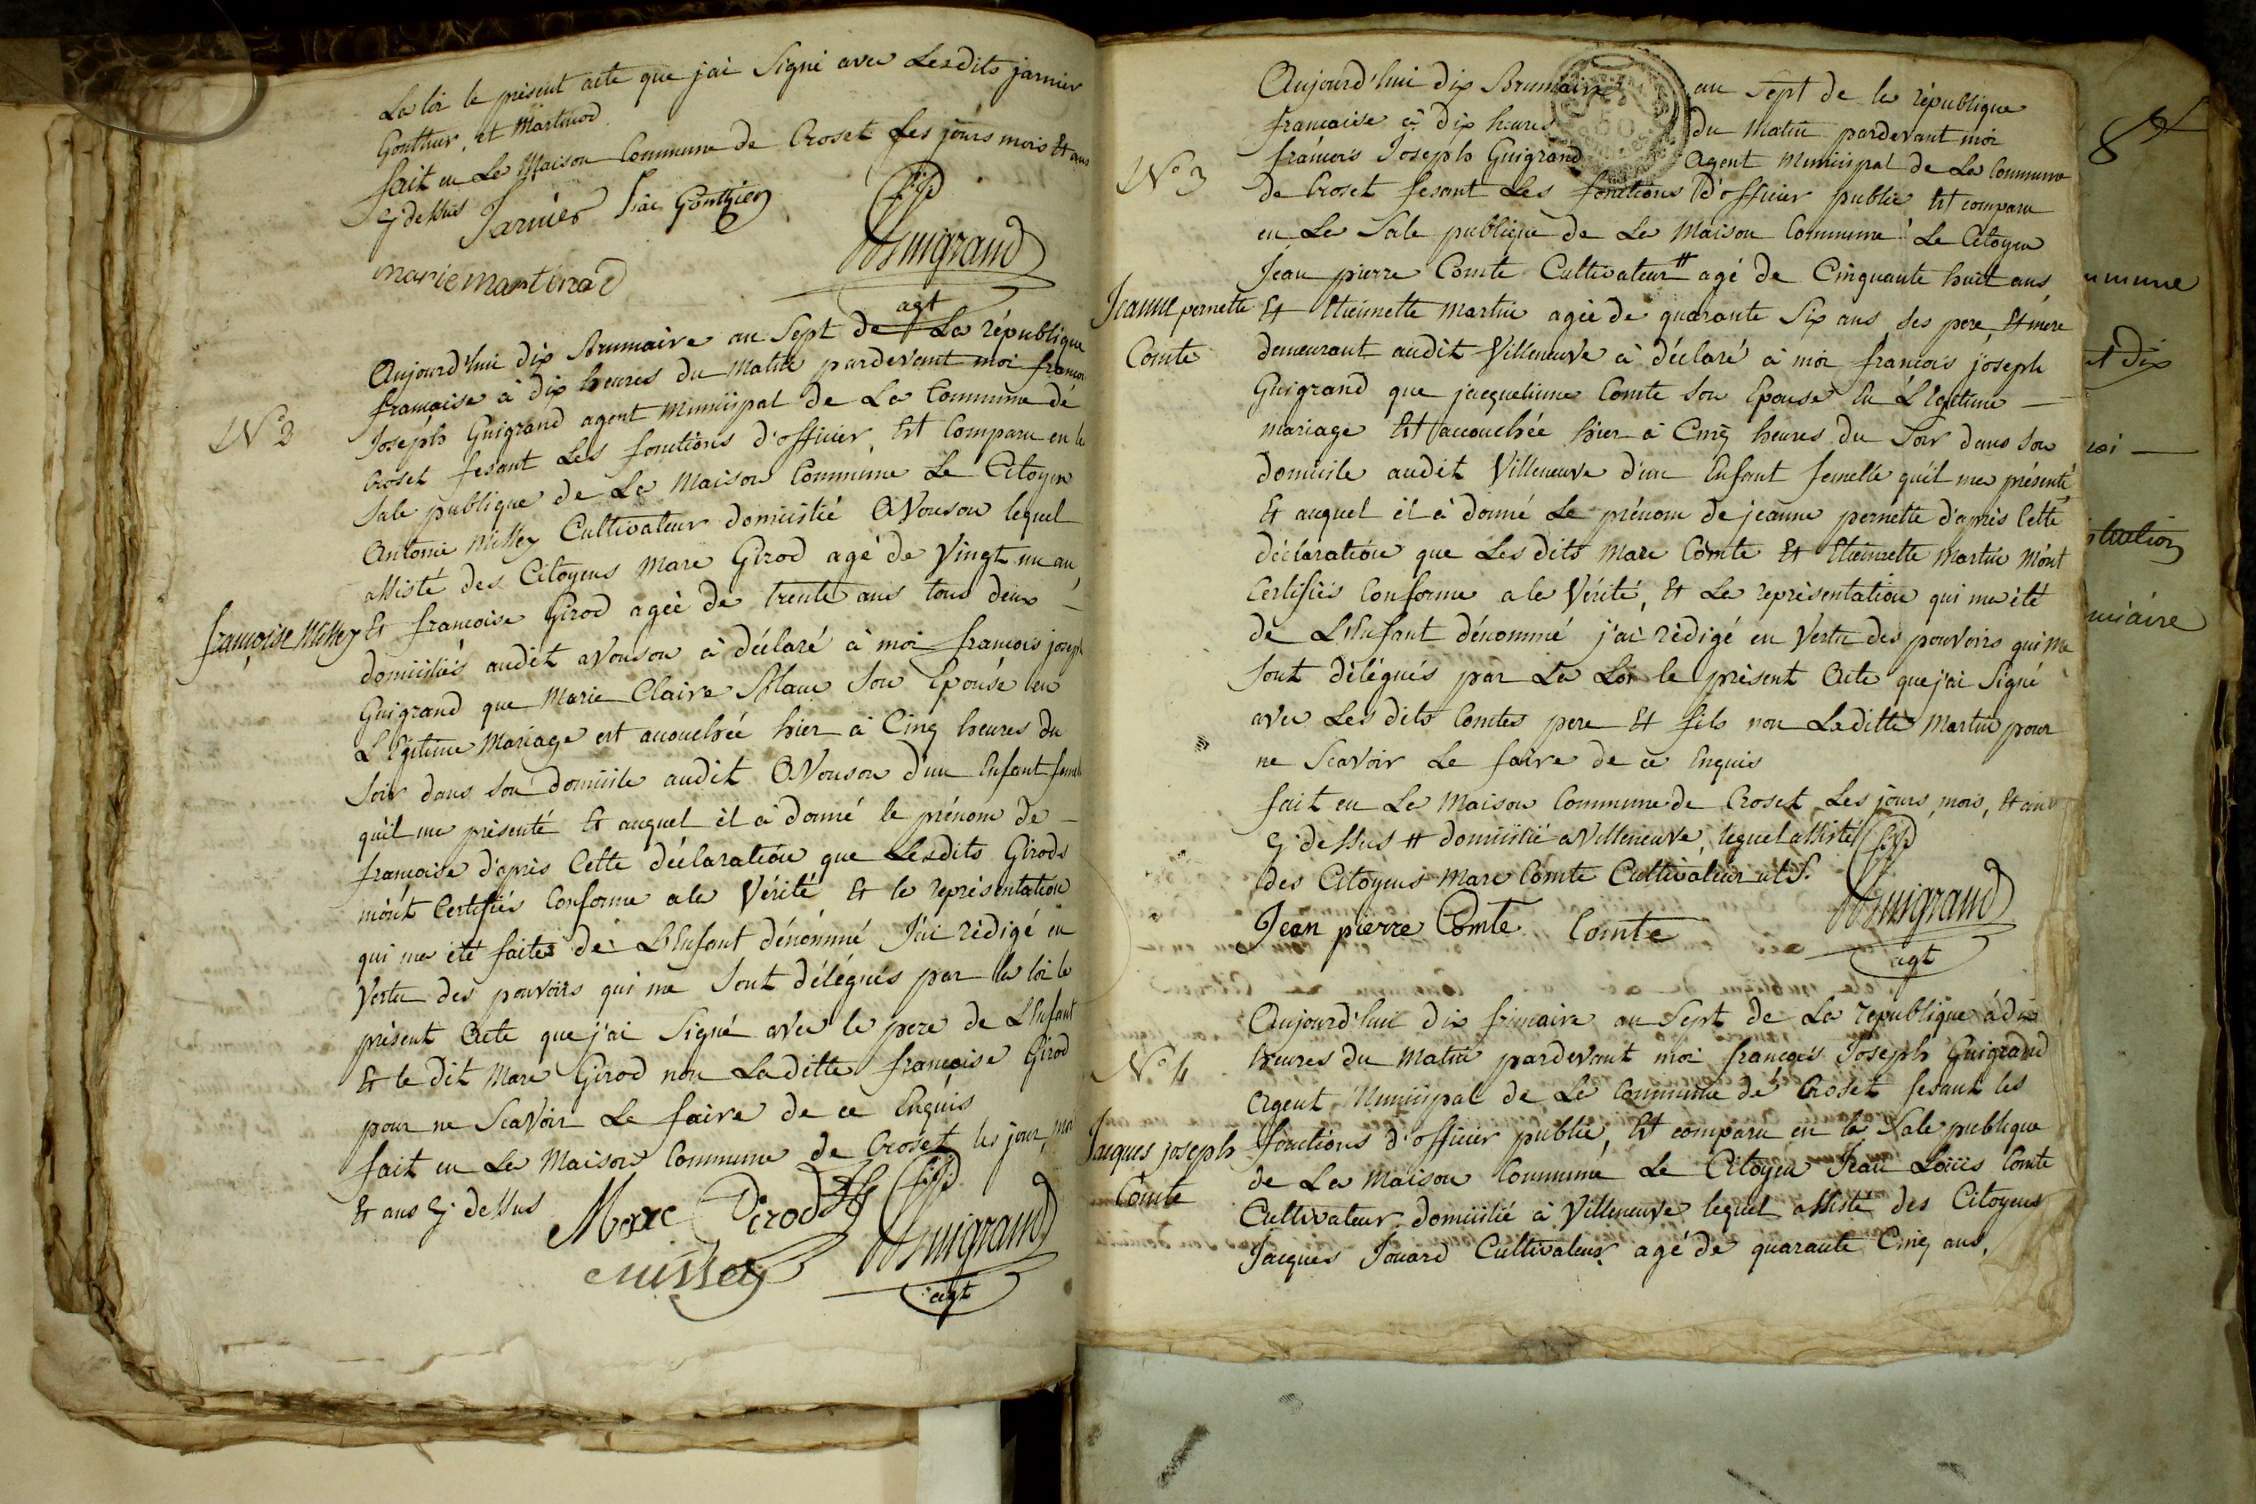 La loi le présent acte que j'ai signé avec Lesdits jarnier
Gonthier, et Martinod
fait en La Maison Commune de Croset les jours mois et ans
cy dessus Jarnier Gonthier
marie martinod
Guigrand
agt
Aujourd'hui dix Brumaire an Sept de La république
francaise à dix heures du matin pardevant moi francois
N° 2
Joseph Guigrand agent municipal de La Commune de
Croset fesant Les fonctions d'officier Est Comparu en la
Sale publique de La Maison Commune Le Citoyen
Antoine Missey Cultivateur domicilié a Vouson lequel
assisté des Citoyens Marc Girod agé de Vingt un an,
françoise Missey
Et francoise Girod agée de trente ans tous deux
domiciliés audit avouson à déclaré à moi francois joseph
Guigrand que Marie Claire Blanc Son Epouse en
Légitime Mariage est accouchée hier à Cinq heures du
Soir dans son domicile audit avouson d'un Enfant femelle
qu'il ma présenté Et auquel il à donné le prénom de
francoise d'après Cette déclaration que Lesdits Girods
m'ont Certifiés Conforme a la Vérité Et la représentation
qui ma été faite de L'Enfant dénommé J'ai rédigé en
Vertu des pouvoirs qui me Sont délégués par la loi le
présent Acte que j'ai Signé avec le pere de L'Enfant
Et le dit Marc Girod non Laditte francoise Girod
pour ne Scavoir Le faire de ce Enquis
fait en La Maison Commune de Croset les jour, mois
Et ans cy dessus
Marc Girod
Guigrand
missey
agt
Aujourd'hui dix Brumaire an Sept de la république
francaise à dix heures du Matin pardevant moi
N° 3
francois Joseph Guigrand agent municipal de La Commune
de Croset fesant Les fonctions d'officier public Est comparu
en La Sale publique de La Maison Commune Le Citoyen
Jean pierre Comte Cultivateur # agé de Cinquante huit ans
Jeanne pernette
Comte
Et Etiennette Martin agée de quarante Six ans ses pere Et mere
demeurant audit Villeneuve à déclaré à moi francois joseph
Guigrand que jacquelinne Comte Son Epouse En L'Egitime
mariage Est accouchée hier à Cinq heures du Soir dans son
domicile audit Villeneuve d'un Enfant femelle qu'il ma présenté
Et auquel il à donné Le prénom de jeanne pernette d'après Cette
déclaration que Les dits Marc Comte Et Etiennette Martin m'ont
Certifiés Conforme a la Vérité, Et La représentation qui ma été
de L'Enfant dénommé j'ai rédigé en Vertu des pouvoirs qui me
Sont délégués par La Loi le présent Acte que j'ai Signé
avec Les dits Comtes pere Et fils non Laditte Martin pour
ne Scavoir Le faire de ce Enquis
fait en La Maison Commune de Croset Les jours, mois, Et ans
cy dessus # domicilié a Villeneuve, lequel assisté
des Citoyens Marc Comte Cultivateur
Jean pierre Comte Comte
Guigrand
agt
Aujourd'hui dix frimaire an Sept de La république à dix
N° 4
heures du Matin pardevant moi francois Joseph Guigrand
Agent Municipal de La Commune de Croset fesant les
Jacques joseph
Comte
fonctions d'officier public, Est comparu en la Sale publique
de La Maison Commune Le Citoyen Jean Louis Comte
Cultivateur domicilié à Villeneuve lequel assisté des Citoyens
Jacques Jouard Cultivateur agé de quarante Cinq ans,